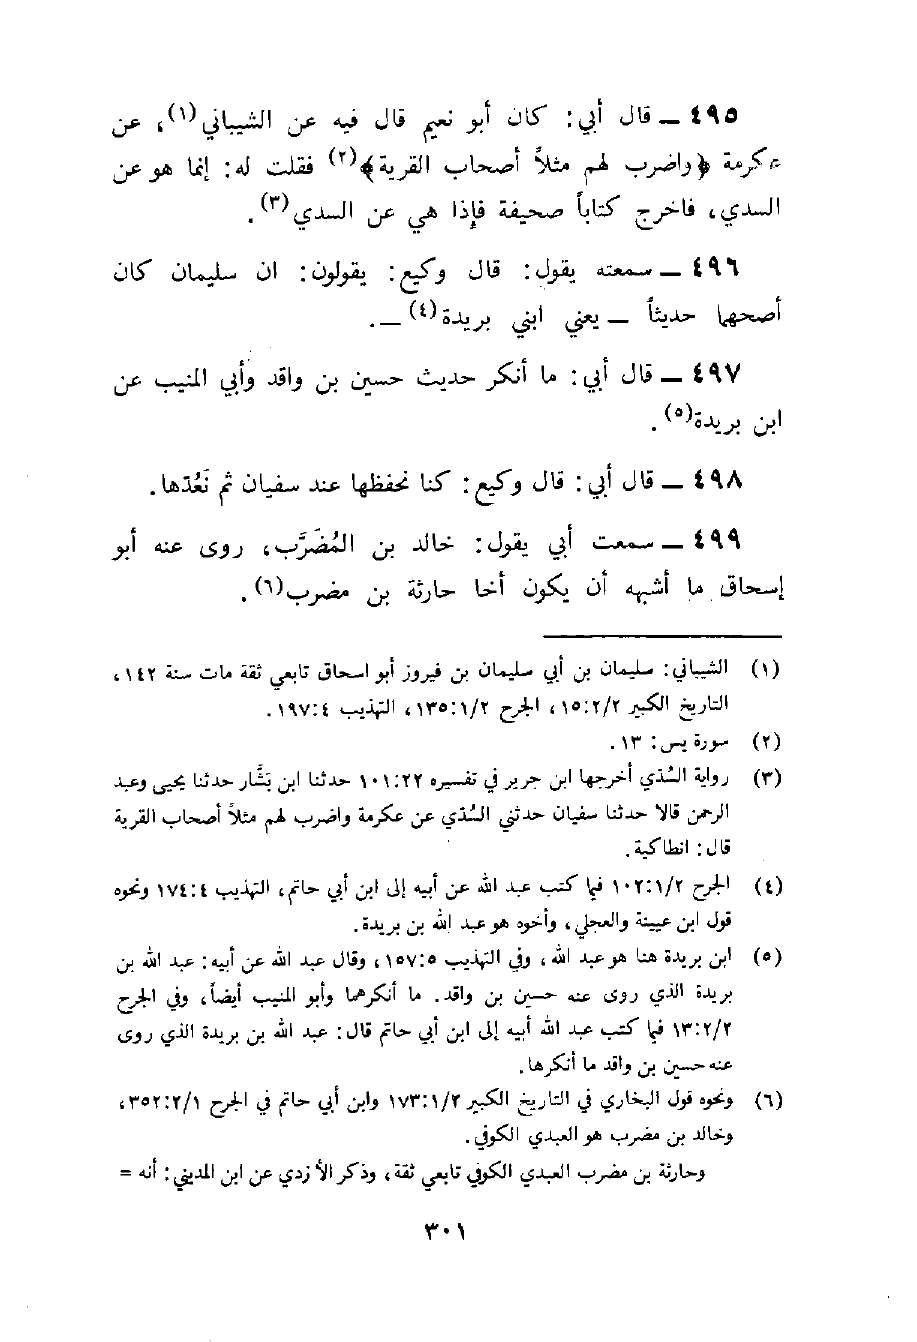 ٤٩٥ ــ قال أبي: كان أبو نعيم قال فيه عن الشيباني(١)، عن
عكرمة ﴿واضرب لهم مثلاً أصحاب القرية﴾(٢) فقلت له: إنما هو عن
السدي، فاخرج كتاباً صحيفة فإذا هي عن السدي(٣).
٤٩٦ ــ سمعته يقول: قال وكيع: يقولون: ان سليمان كان
أصحها حديثاً ــ يعني ابني بريدة(٤) ــ.
٤٩٧ ــ قال أبي: ما أنكر حديث حسين بن واقد وأبي المنيب عن
ابن بريدة(٥).
٤٩٨ ــ قال أبي: قال وكيع: كنا نحفظها عند سفيان ثم نَعُدّها.
٤٩٩ ــ سمعت أبي يقول: خالد بن المُضَرَّب، روى عنه أبو
إسحاق ما أشبهه أن يكون أخا حارثة بن مضرب(٦).
(١) الشيباني: سليمان بن أبي سليمان بن فيروز أبو اسحاق تابعي ثقة مات سنة ١٤٢،
التاريخ الكبير ١٥:٢/٢، الجرح ١٣٥:١/٢، التهذيب ١٩٧:٤.
(٢) سورة يس: ١٣.
(٣) رواية السُّدي أخرجها ابن جرير في تفسيره ١٠١:٢٢ حدثنا ابن بَشَّار حدثنا يحيى وعبد
الرحمن قالا حدثنا سفيان حدثني السُّدي عن عكرمة واضرب لهم مثلاً أصحاب القرية
قال: انطاكية.
(٤) الجرح ١٠٢:١/٢ فيما كتب عبد الله عن أبيه إلى ابن أبي حاتم، التهذيب ١٧٤:٤ ونحوه
قول ابن عيينة والعجلي، وأخوه هو عبد الله بن بريدة.
(٥) ابن بريدة هنا هو عبد الله، وفي التهذيب ١٥٧:٥، وقال عبد الله عن أبيه: عبد الله بن
بريدة الذي روى عنه حسين بن واقد. ما أنكرهما وأبو المنيب أيضاً، وفي الجرح
١٣:٢/٢ فيما كتب عبد الله أبيه إلى ابن أبي حاتم قال: عبد الله بن بريدة الذي روى
عنه حسين بن واقد ما أنكرها.
(٦) ونحوه قول البخاري في التاريخ الكبير ١٧٣:١/٢ وابن أبي حاتم في الجرح ٣٥٢:٢/١،
وخالد بن مضرب هو العبدي الكوفي.
وحارثة بن مضرب العبدي الكوفي تابعي ثقة، وذكر الأزدي عن ابن المديني: أنه =
٣٠١